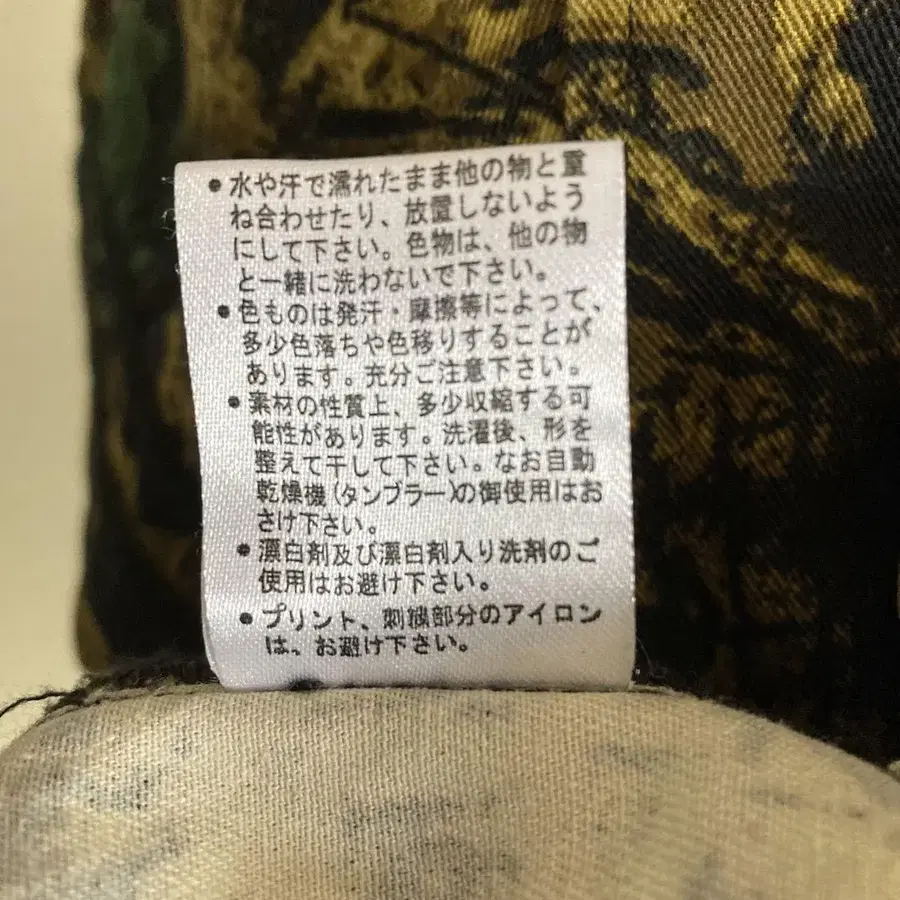 • 水や汗で濡れたまま他の物と重
ね合わせたり、放置しないよう
にして下さい。色物は、他の物
と一緒に洗わないで下さい。
• 色ものは発汗・摩擦等によって、
多少色落ちや色移りすることが
あります。充分ご注意下さい。
• 素材の性質上、多少収縮する可
能性があります。洗濯後、形を
整えて干して下さい。なお自動
乾燥機(タンブラー)の御使用はお
さけ下さい。
• 漂白剤及び漂白剤入り洗剤のご
使用はお避け下さい。
• プリント、刺繍部分のアイロン
は、お避け下さい。